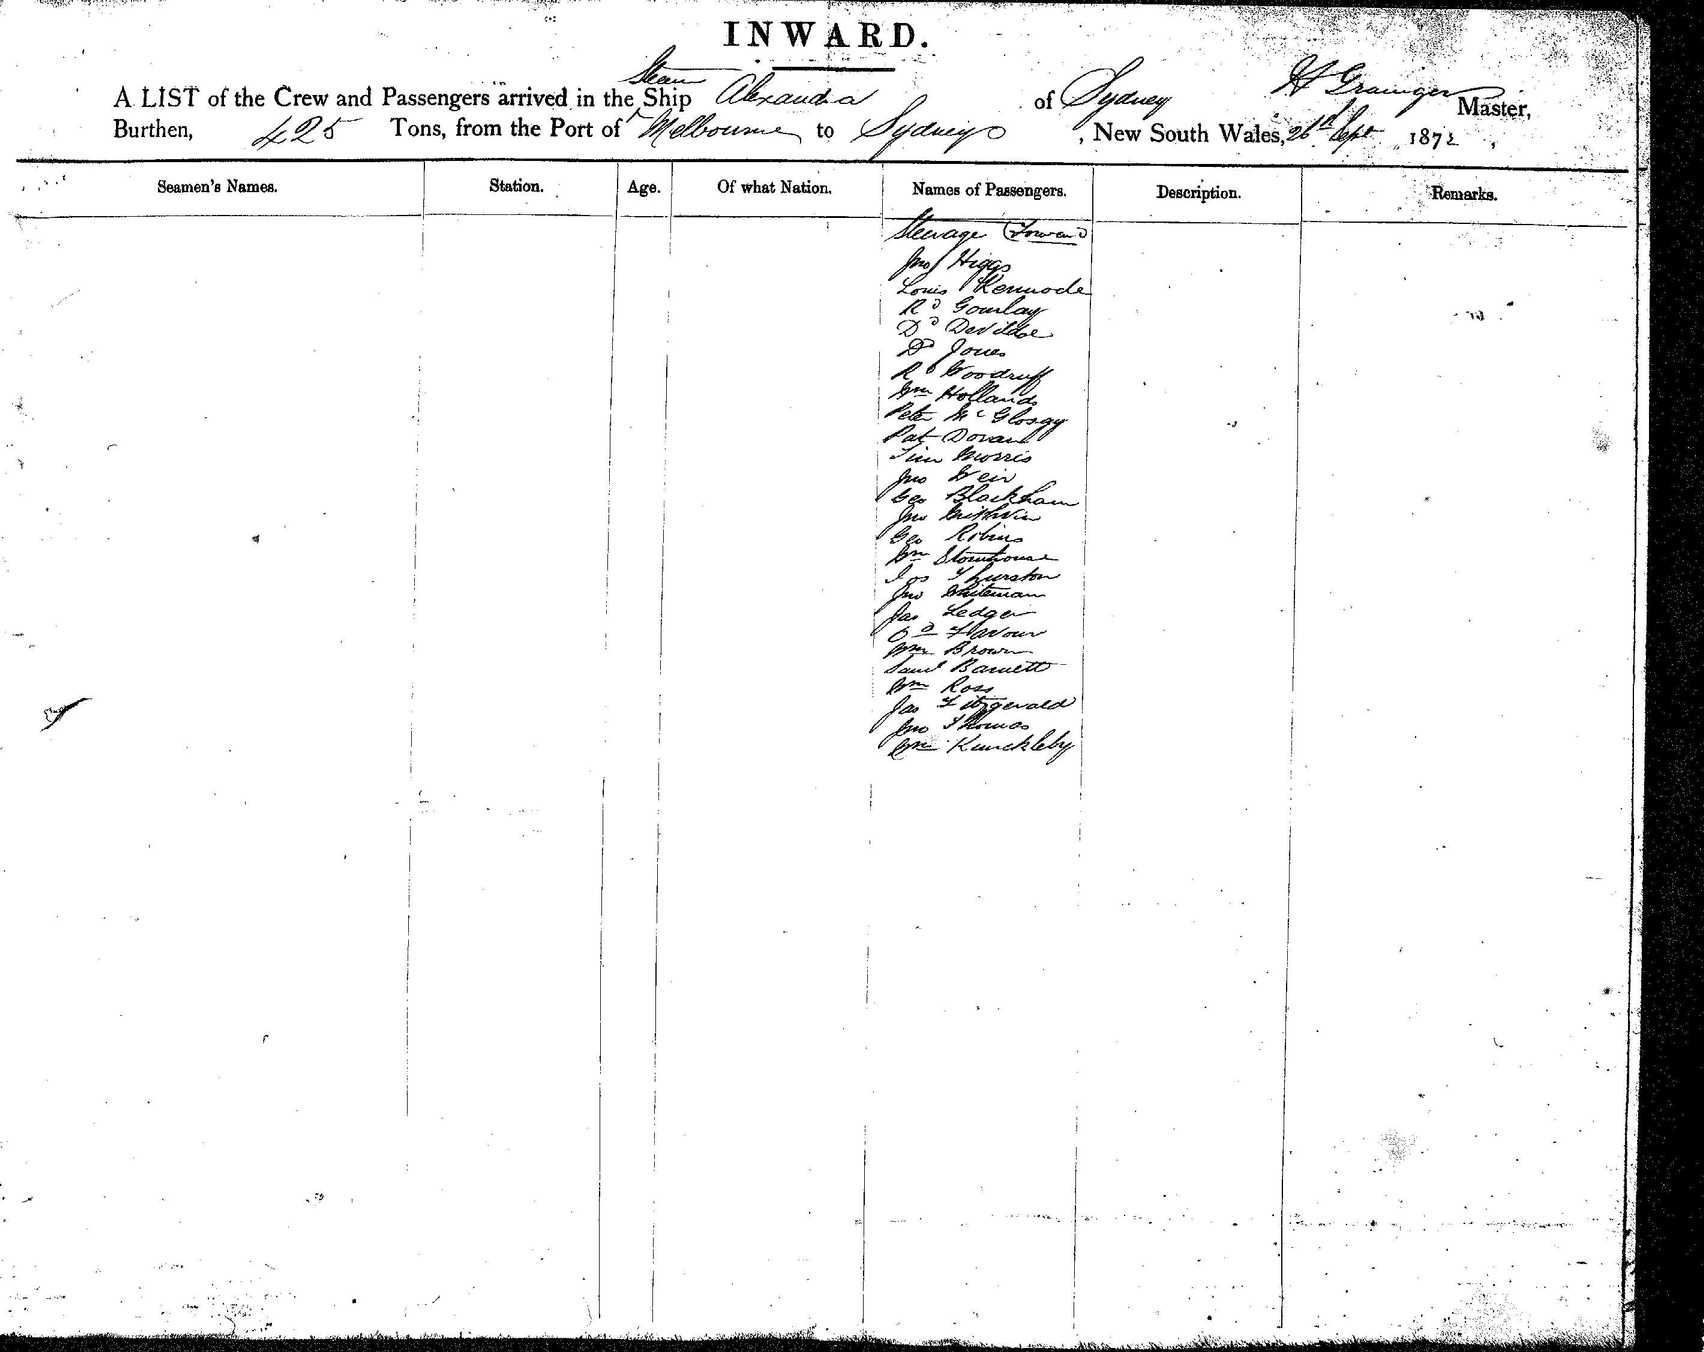 INWARD.
Steam
A LIST of the Crew and Passengers arrived in the Ship Alexandra of Sydney H Grainger Master,
Burthen, 425 Tons, from the Port of Melbourne to Sydney, New South Wales, 26th Sept 1872
Seamen's Names. Station. Age. Of what Nation. Names of Passengers. Description. Remarks.
Steerage
Jno Higgs
Louis Kermode
Rd Gourlay
Dd
Dd Jones
Rd Woodruff
Wm Hollands
Peter
Pat Doran
Tim Morris
Jno Weir
Geo Blackham
Jno
Geo Robins
Wm Stonehouse
Jos Thurston
Jno Whiteman
Jas Ledger
Flavour
Wm Brown
Saml Barnett
Wm Ross
Jas Fitzgerald
Jno Thomas
Wm